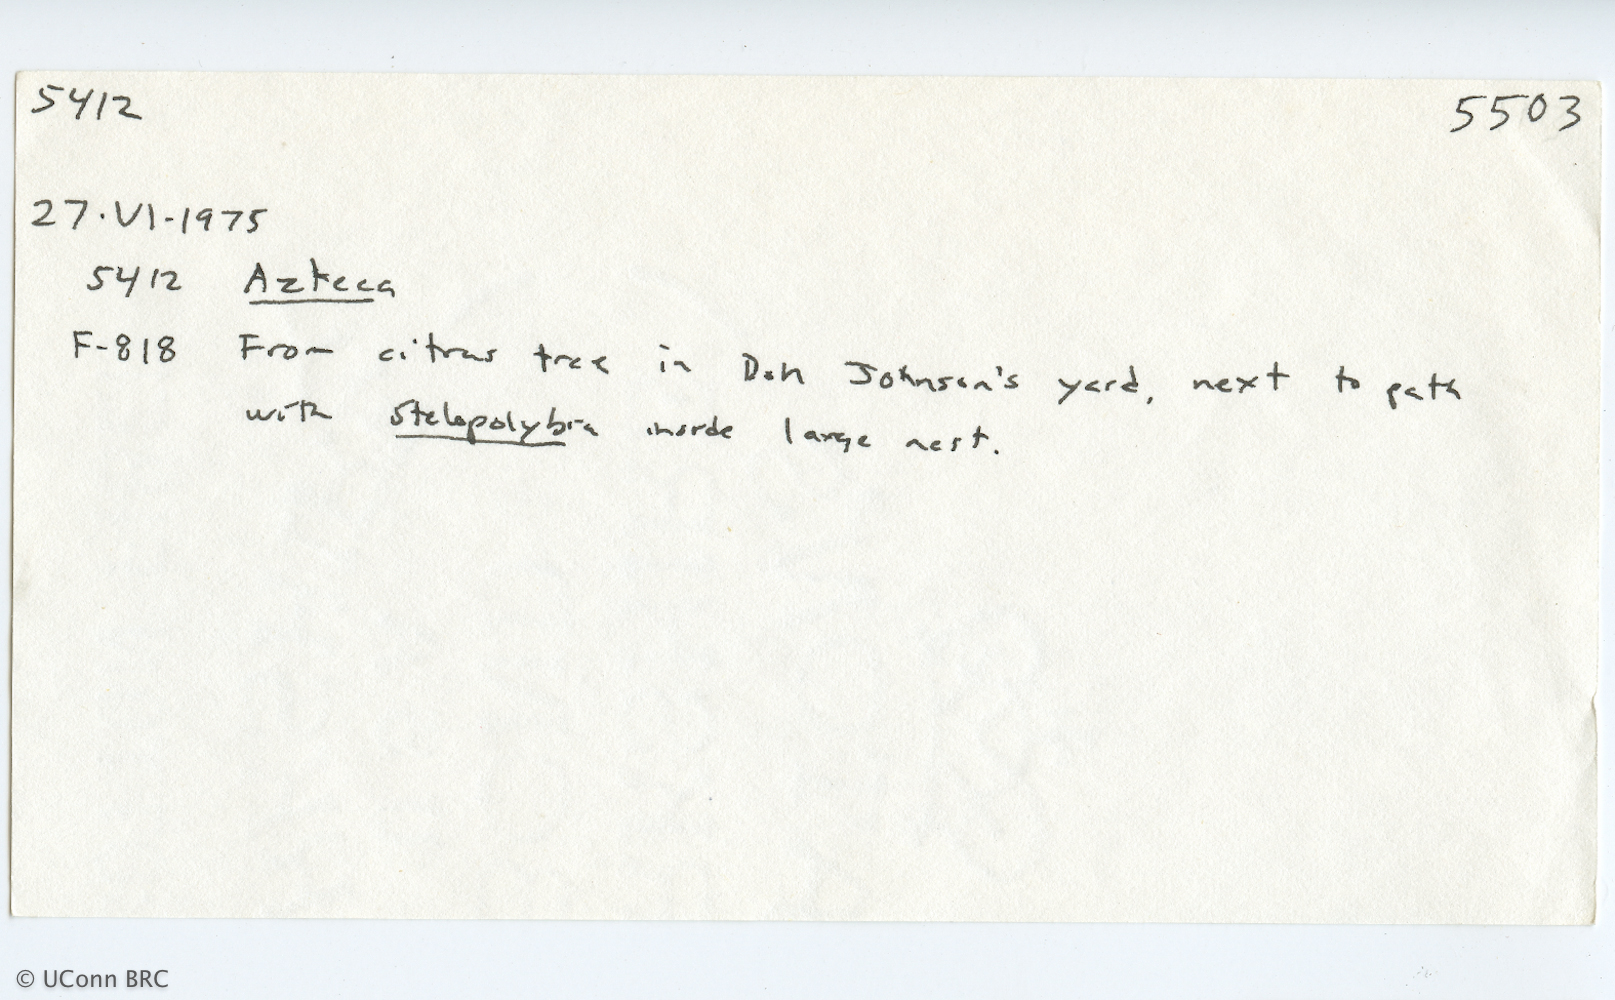 5412 5503
27·VI-1975
5412 Azteca
F-818 From citrus tree in Don Johnson's yard, next to path
with Stelopolybia inside large nest.
© UConn BRC